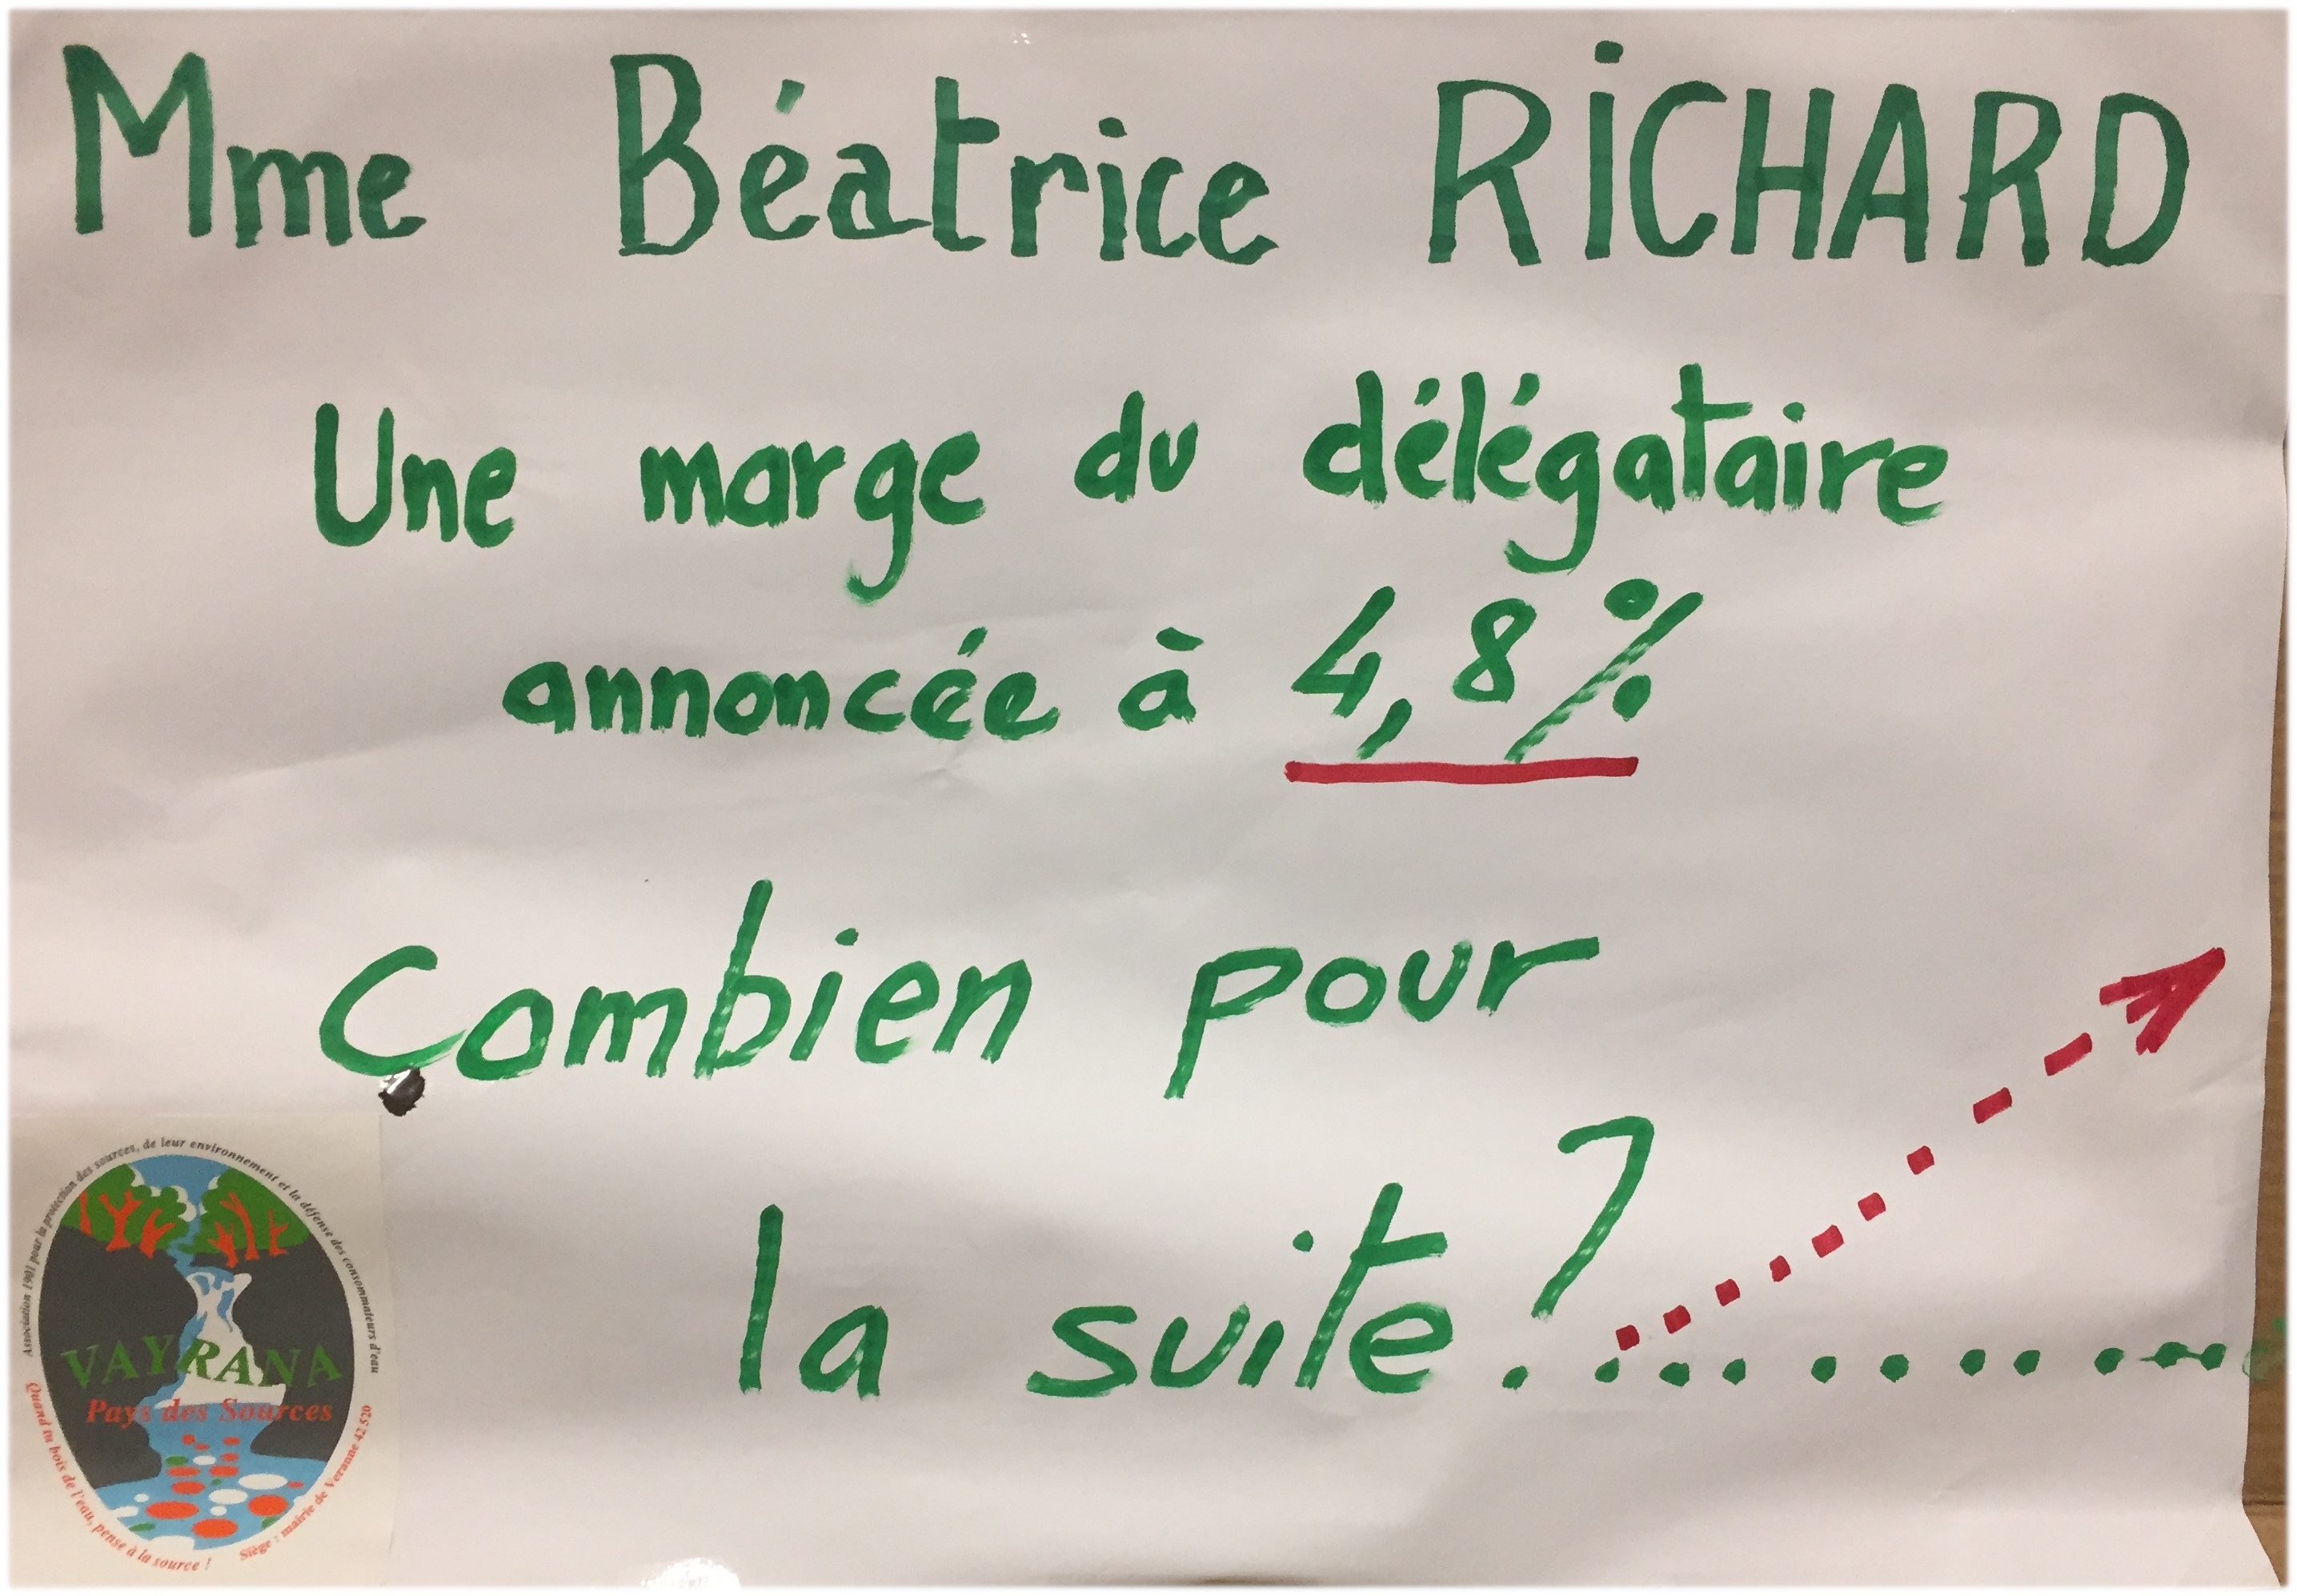 Mme Béatrice RiCHARD
Une marge du délégataire
annoncée à 4,8%
Combien pour
la suite ?..........
Association 1901 pour la protection des sources, de leur environnement et la défense des consommateurs d'eau
VAYRANA
Pays des Sources
Quand tu bois de l'eau, pense à la source !
Siège : mairie de Veranne 42520